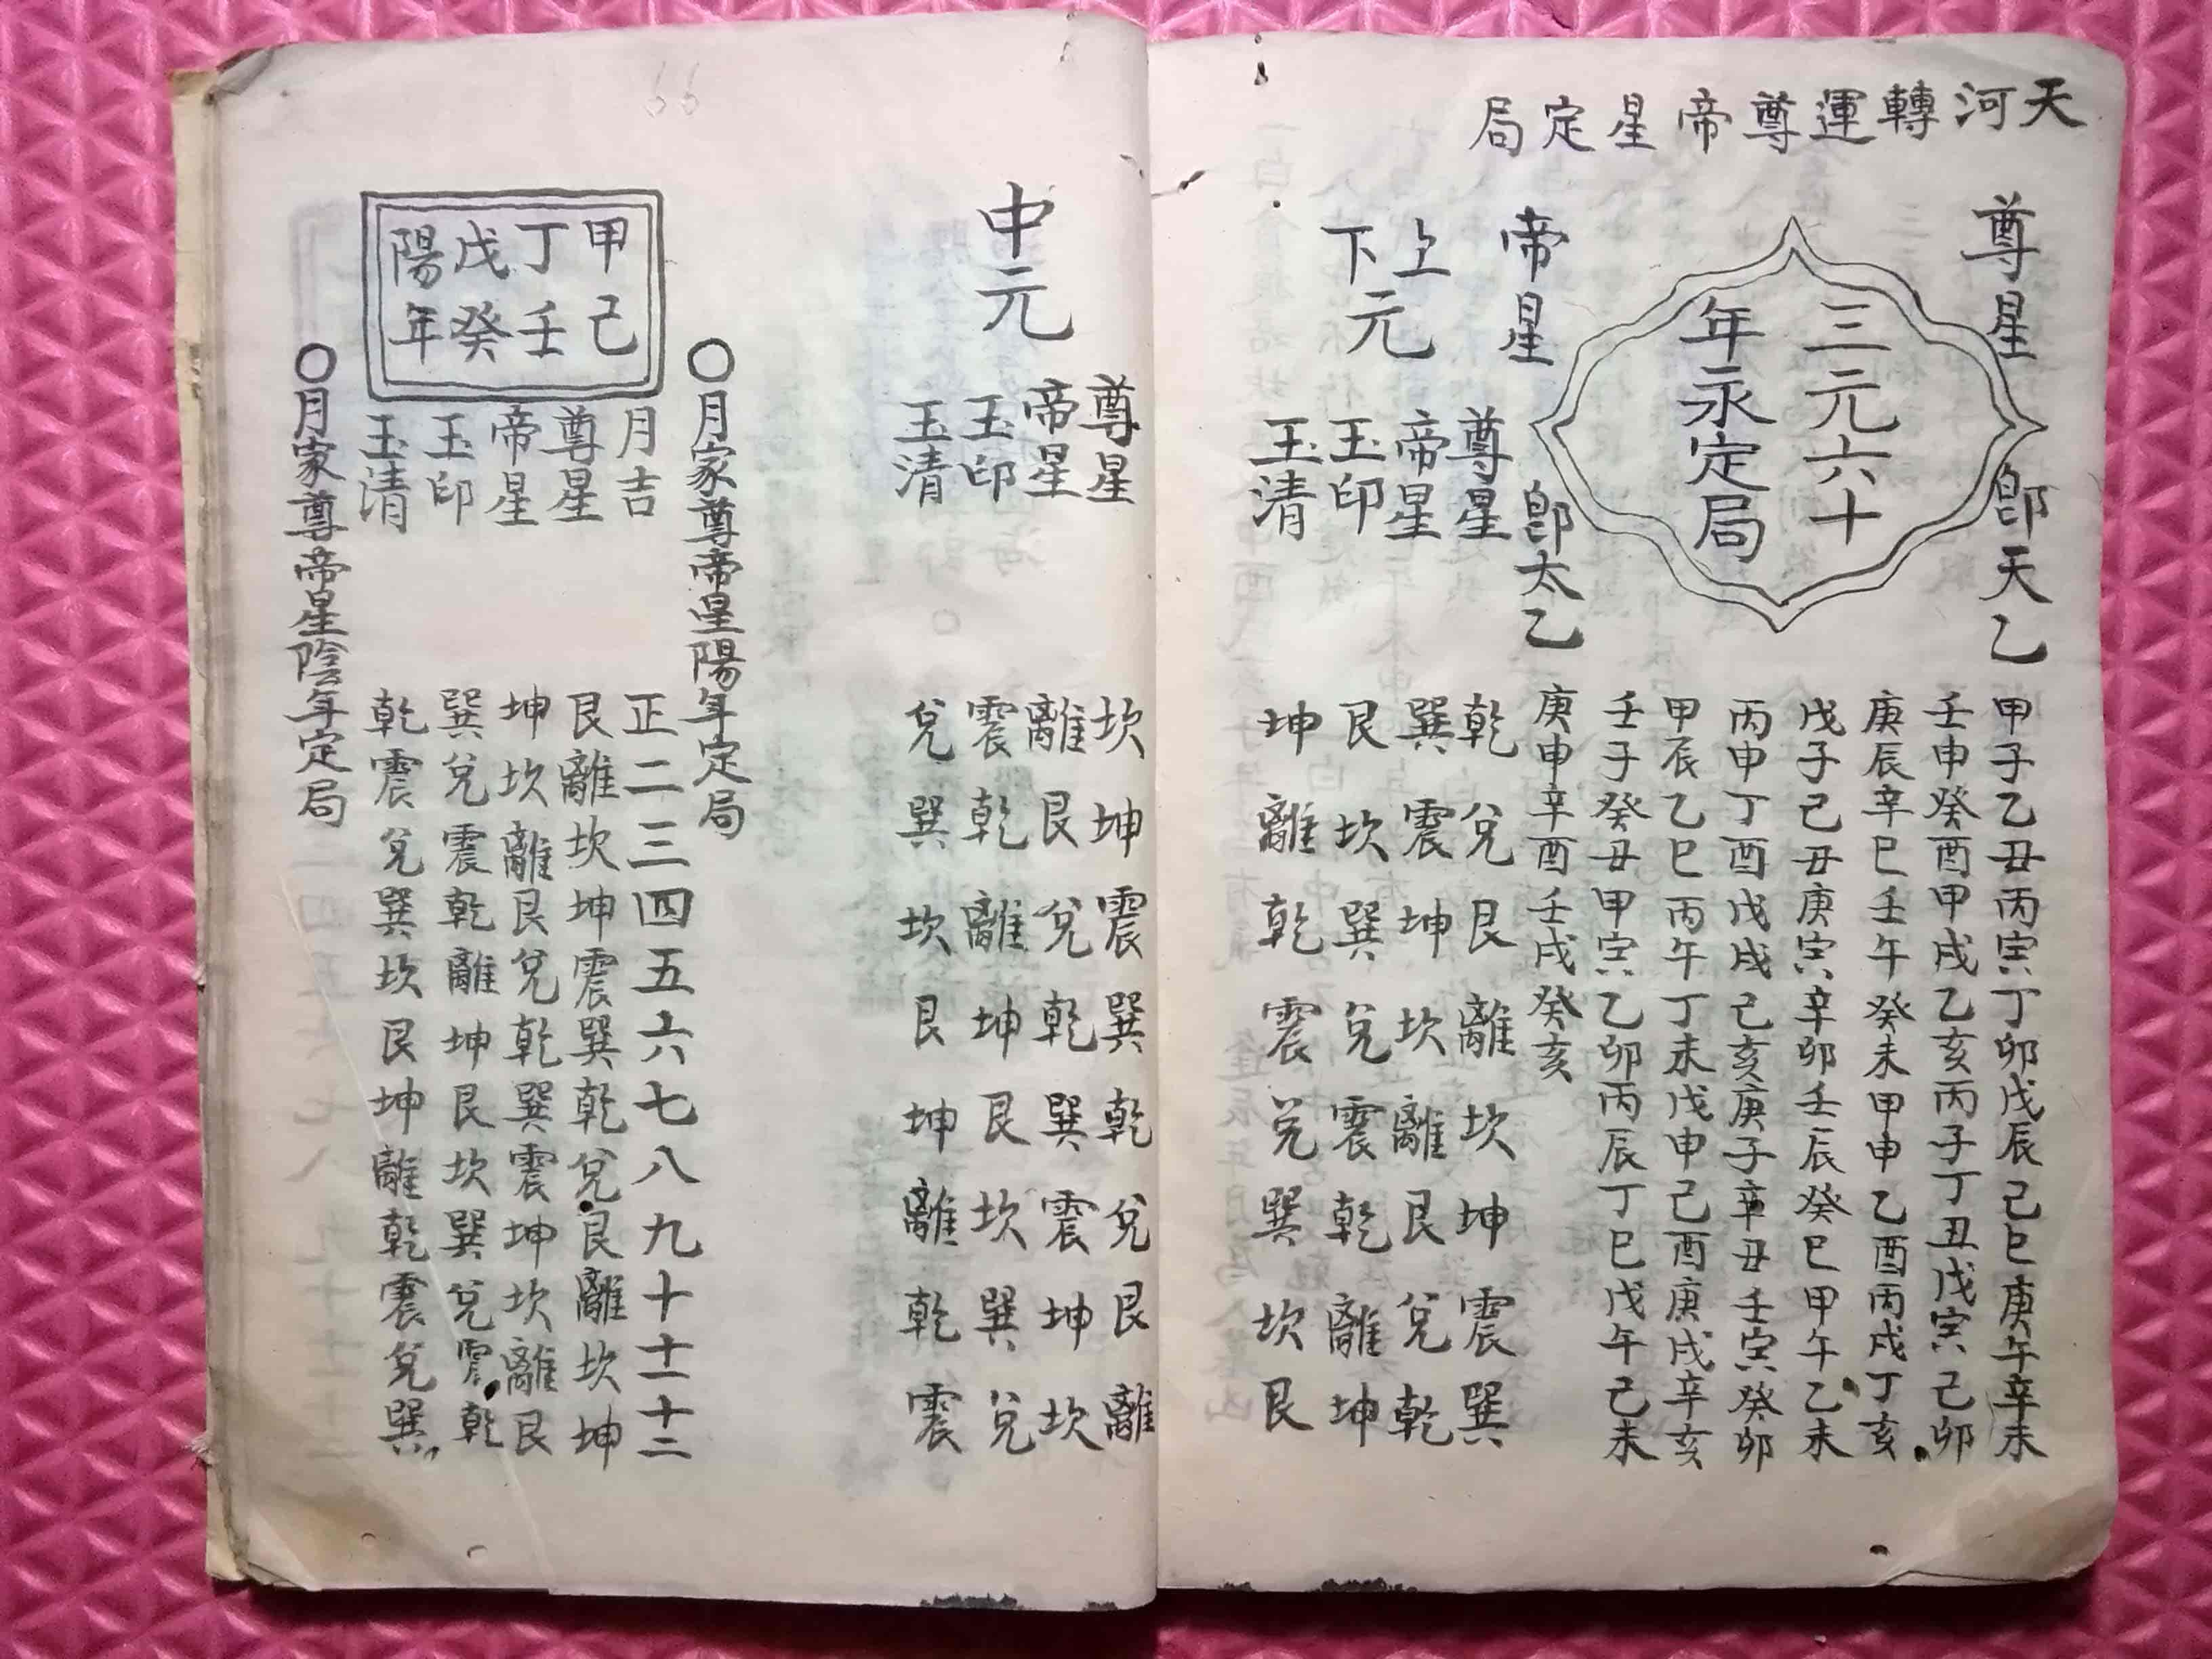 天河轉運尊帝星定局
尊星 即天乙
三元六十
年永定局
帝星 即太乙
甲子乙丑丙寅丁卯戊辰己巳庚午辛未
壬申癸酉甲戌乙亥丙子丁丑戊寅己卯
庚辰辛巳壬午癸未甲申乙酉丙戌丁亥
戊子己丑庚寅辛卯壬辰癸巳甲午乙未
丙申丁酉戊戌己亥庚子辛丑壬寅癸卯
甲辰乙巳丙午丁未戊申己酉庚戌辛亥
壬子癸丑甲寅乙卯丙辰丁巳戊午己未
庚申辛酉壬戌癸亥
上下元
尊星 乾兌艮離坎坤震巽
帝星 巽震坤坎離艮兌乾
玉印 艮坎巽兌震乾離坤
玉清 坤離乾震兌巽坎艮
66
中元
尊星 坎坤震巽乾兌艮離
帝星 離艮兌乾巽震坤坎
玉印 震乾離坤艮坎巽兌
玉清 兌巽坎艮坤離乾震
〇月家尊帝星陽年定局
甲己
丁壬
戊癸
陽年
月吉 正二三四五六七八九十十一十二
尊星 艮離坎坤震巽乾兌艮離坎坤
帝星 坤坎離艮兌乾巽震坤坎離艮
玉印 巽兌震乾離坤艮坎巽兌震乾
玉清 乾震兌巽坎艮坤離乾震兌巽
〇月家尊帝星陰年定局